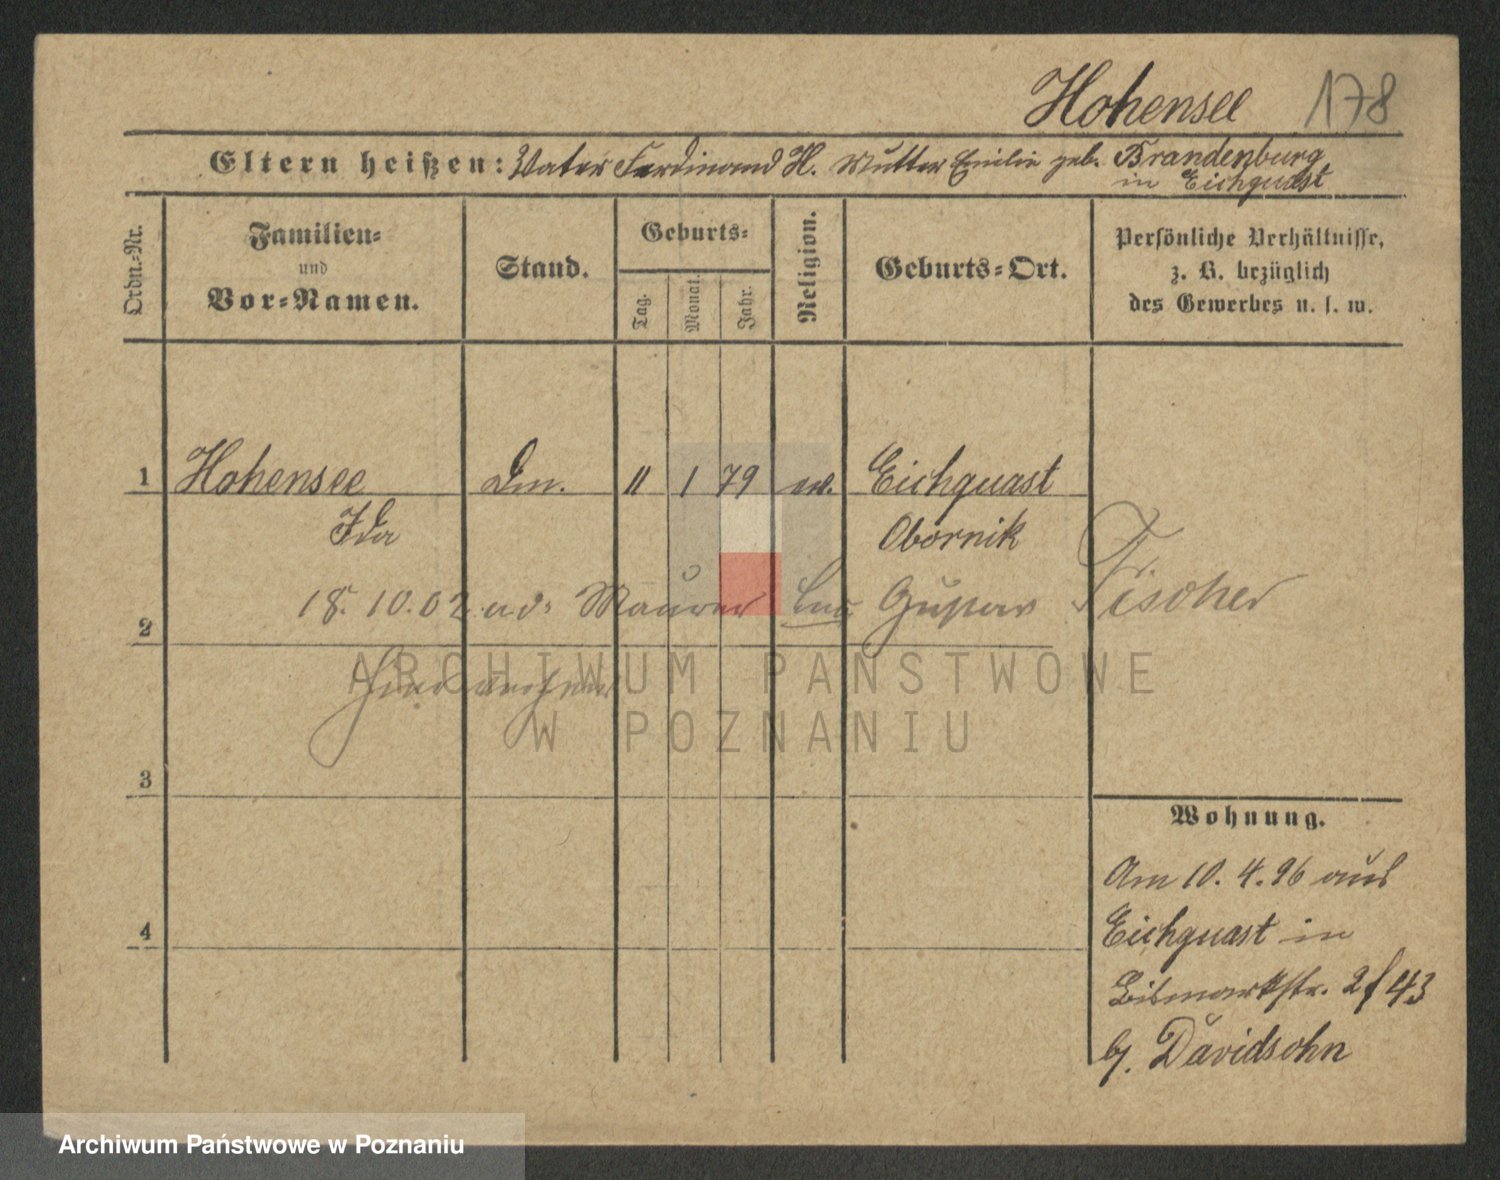 Hohensee 178
Eltern heißen: Vater Ferdinand H. Mutter Emilie geb. Brandenburg
in Eichquast
Ordn.-Nr.
Familien-
und
Vor-Namen.
Stand.
Geburts-
Tag.
Monat.
Jahr.
Religion.
Geburts-Ort.
Persönliche Verhältnisse,
z. B. bezüglich
des Gewerbes u. s. w.
1 Hohensee Dm. 11 1 79 ev. Eichquast
Ida Obornik
18. 10. 02 a. d. Maurer Gustav Fischer
2
ARCHIWUM PAŃSTWOWE
W POZNANIU
3
4
Wohnung.
Am 10. 4. 96 aus
Eichquast in
Bismarckstr. 2 f 43
bj. Davidsohn
Archiwum Państwowe w Poznaniu